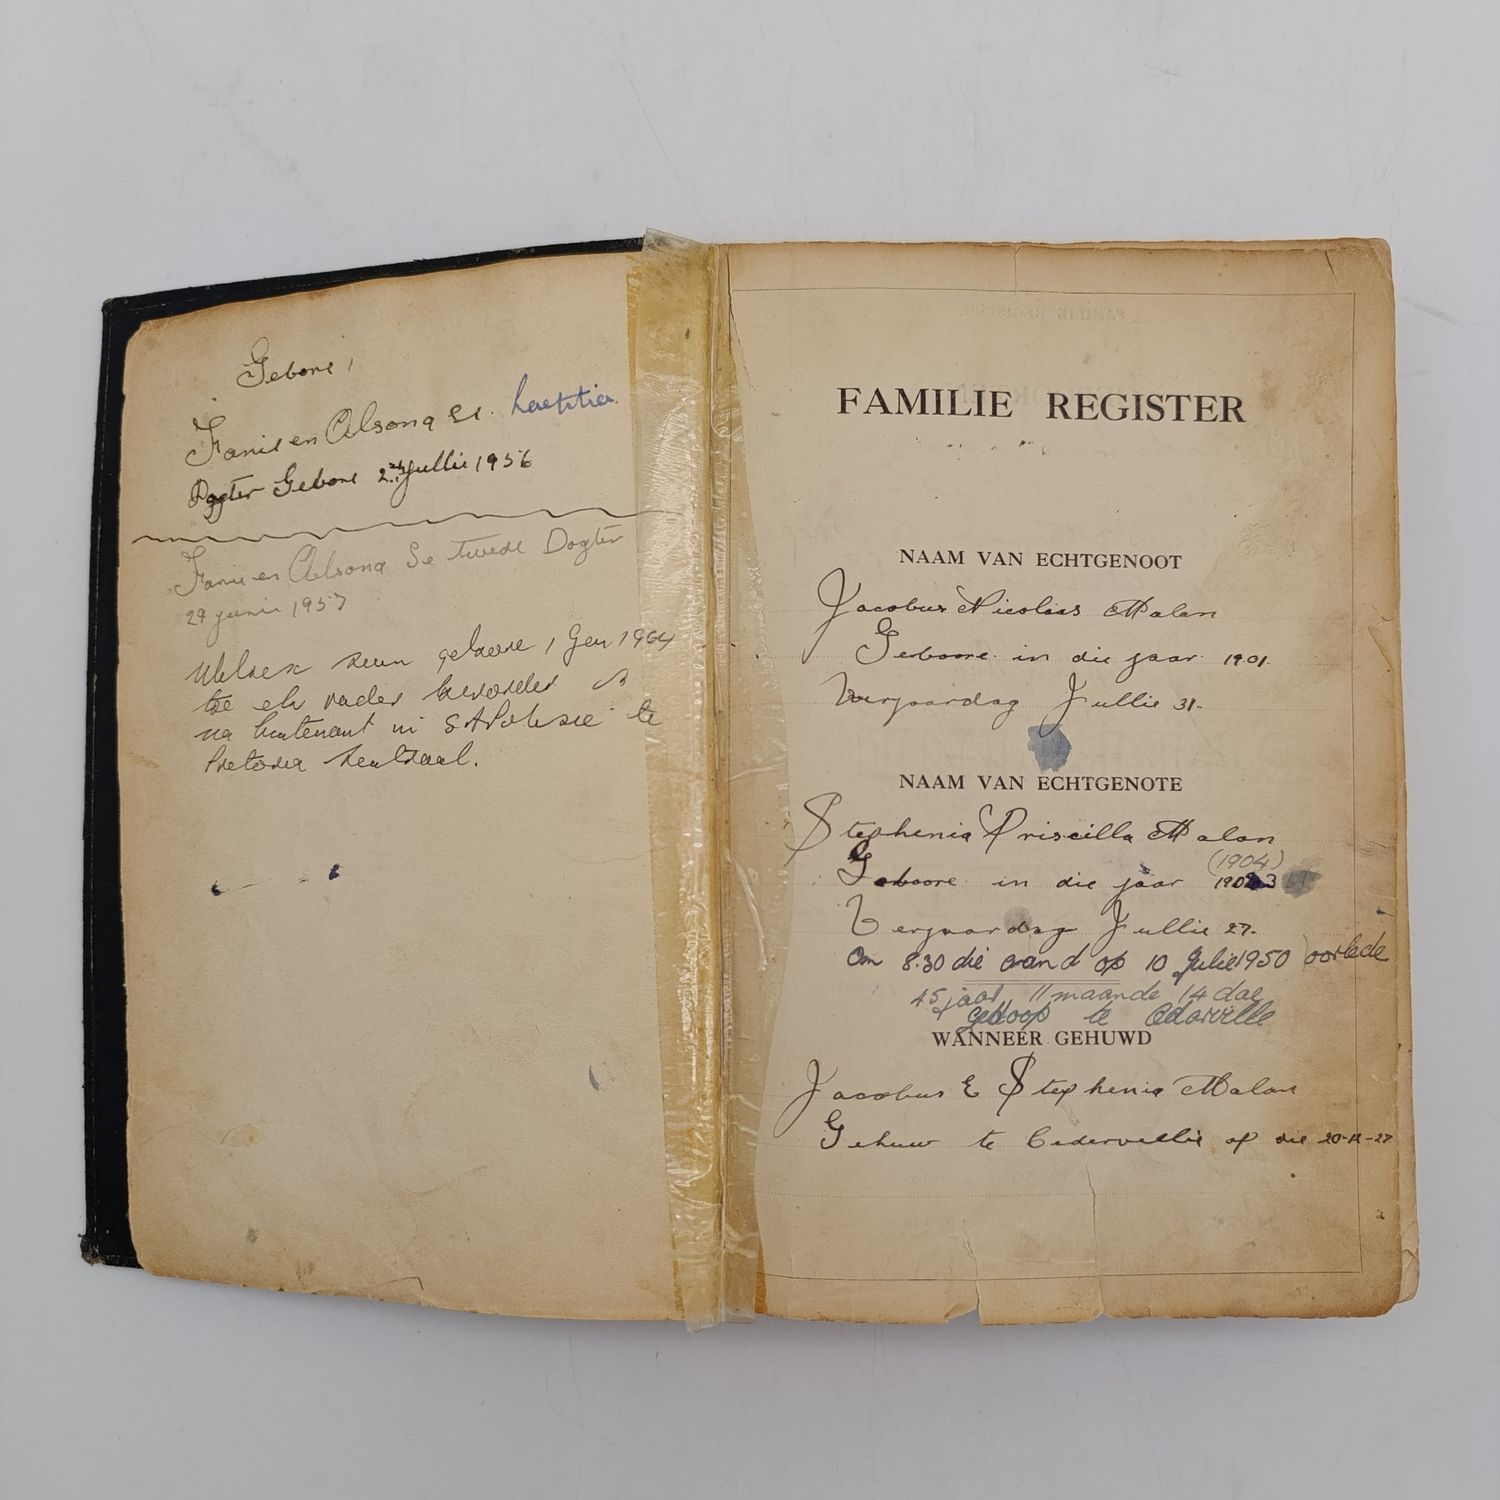 Gebore,
Fanie en Alsona se
Dogter Gebore 2 Jullie 1956
Fanie en Alsona Se twede Dogter
29 junie 1957
seun gebore 1 Jan 1964
toe sy vader bevorder is
na luitenant in SA Polisie te
Pretoria Sentraal.
FAMILIE REGISTER
NAAM VAN ECHTGENOOT
Jacobus Nicolaas Malan
Geboore in die jaar 1901
Verjaardag Jullie 31.
NAAM VAN ECHTGENOTE
Stephenia Priscilla Malan
(1904)
Geboore in die jaar 1903
Verjaardag Jullie 27.
Om 8.30 die aand op 10 Julie 1950 oorlede
45 jaar, 11 maande 14 dae
te
WANNEER GEHUWD
Jacobus & Stephenia Malan
Gehuw te Cedervellie op die 20-12-27